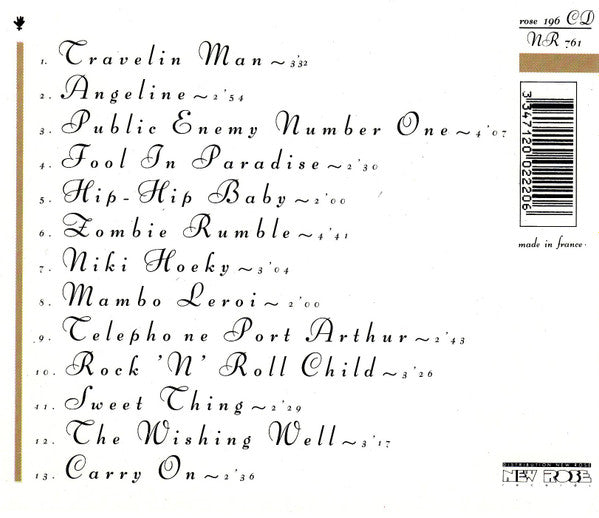 rose 196 CD
NR 761
1. Travelin Man ~ 3'32
2. Angeline ~ 2'54
3. Public Enemy Number One ~ 4'07
4. Fool In Paradise ~ 2'30
5. Hip-Hip Baby ~ 2'00
6. Zombie Rumble ~ 4'41
7. Niki Hoeky ~ 3'04
8. Mambo Leroi ~ 2'00
9. Telephone Port Arthur ~ 2'43
10. Rock 'N' Roll Child ~ 3'26
11. Sweet Thing ~ 2'29
12. The Wishing Well ~ 3'17
13. Carry On ~ 2'36
3347120 022206
made in france.
DISTRIBUTION NEW ROSE
NEW ROSE